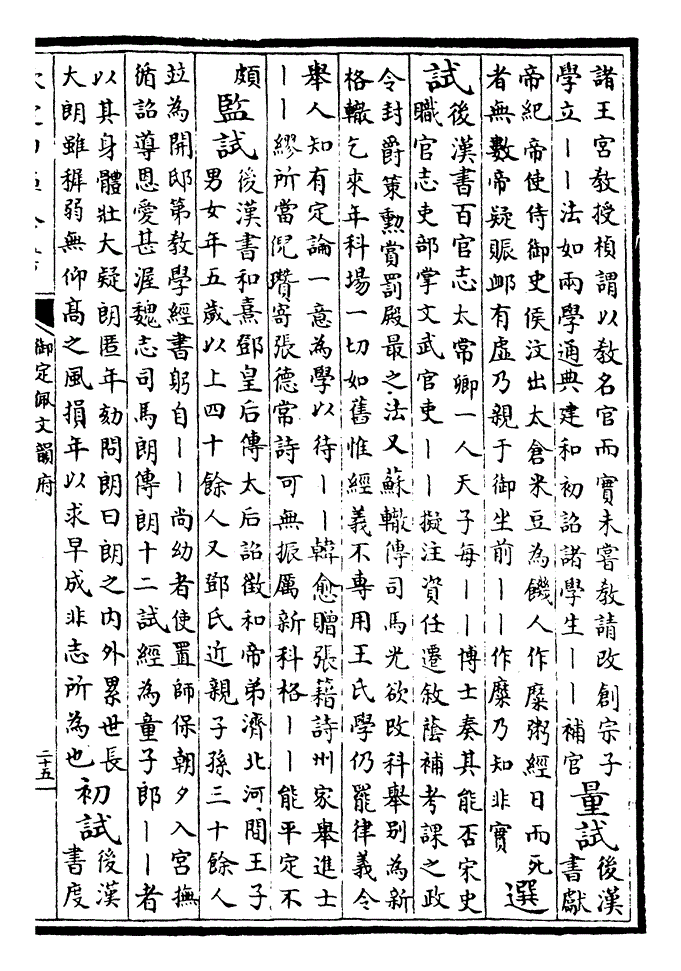 諸王宮教授楨謂以教名官而實未甞教請改創宗子
學立――法如兩學通典建和初詔諸學生――補官
量試
後漢
書獻
帝紀帝使侍御史侯汶出太倉米豆為饑人作糜粥經日而死
者無數帝疑賑卹有虛乃親于御坐前――作糜乃知非實
選
試
後漢書百官志太常卿一人天子每――博士奏其能否宋史
職官志吏部掌文武官吏――擬注資任遷敘蔭補考課之政
令封爵策勲賞罰殿最之法又蘇轍傳司馬光欲改科舉別為新
格轍乞來年科場一切如舊惟經義不專用王氏學仍罷律義令
舉人知有定論一意為學以待――韓愈贈張籍詩州家舉進士
――繆所當倪瓚寄張德常詩可無振厲新科格――能平定不
頗
監試
後漢書和熹鄧皇后傳太后詔徵和帝弟濟北河間王子
男女年五歲以上四十餘人又鄧氏近親子孫三十餘人
竝為開邸第教學經書躬自――尚幼者使置師保朝夕入宮撫
循詔導恩愛甚渥魏志司馬朗傳朗十二試經為童子郎――者
以其身體壯大疑朗匿年劾問朗曰朗之內外累世長
大朗雖穉弱無仰高之風損年以求早成非志所為也
初試
後漢
書度
御定佩文韻府
二十五